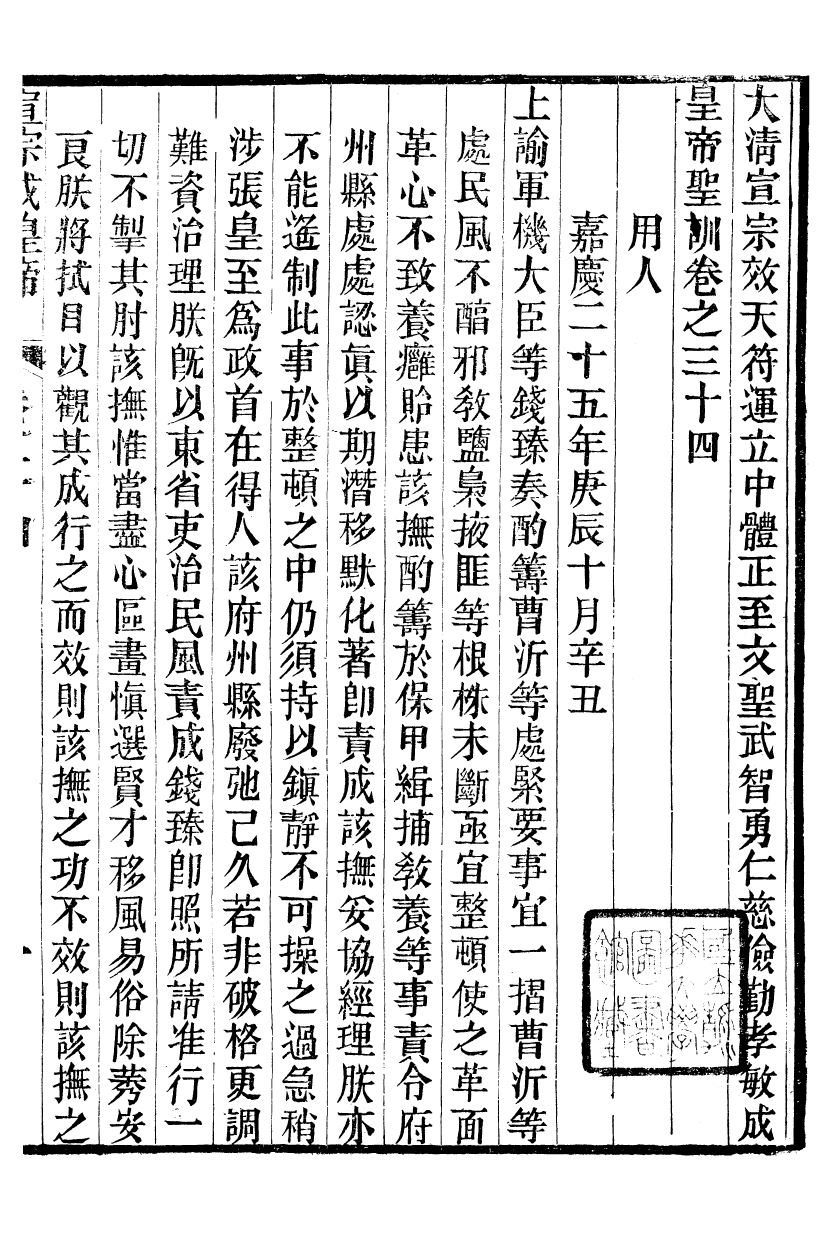 大清宣宗效天符運立中體正至文聖武智勇仁慈儉勤孝敏成
皇帝聖訓卷之三十四
用人
嘉慶二十五年庚辰十月辛丑
上諭軍機大臣等錢臻奏酌籌曹沂等處緊要事宜一摺曹沂等
處民風不醇邪敎鹽梟掖匪等根株未斷亟宜整頓使之革面
革心不致養癰貽患該撫酌籌於保甲緝捕敎養等事責令府
州縣處處認眞以期潛移默化著卽責成該撫妥協經理朕亦
不能遙制此事於整頓之中仍須持以鎭靜不可操之過急稍
涉張皇至爲政首在得人該府州縣廢弛已久若非破格更調
難資治理朕旣以東省吏治民風責成錢臻卽照所請准行一
切不掣其肘該撫惟當盡心區畫愼選賢才移風易俗除莠安
良朕將拭目以觀其成行之而效則該撫之功不效則該撫之
宣宗成皇帝